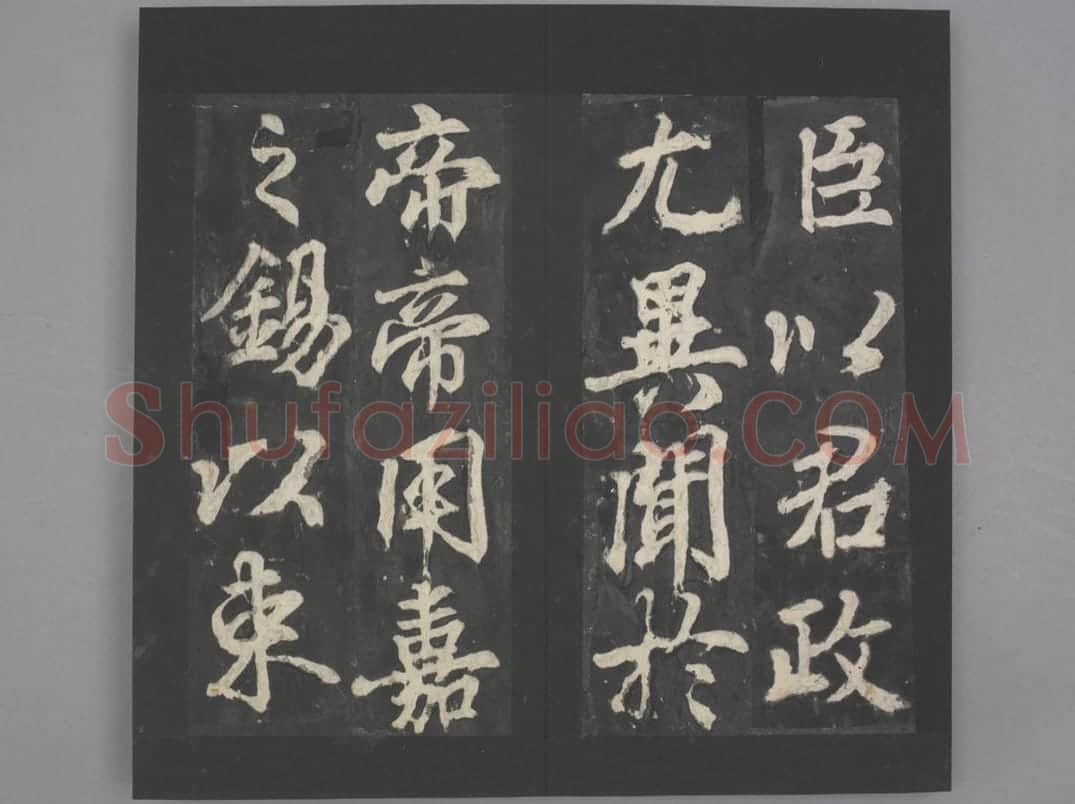 臣以君政
尤異聞於
帝帝用嘉
之錫以束
Shufaziliao.COM